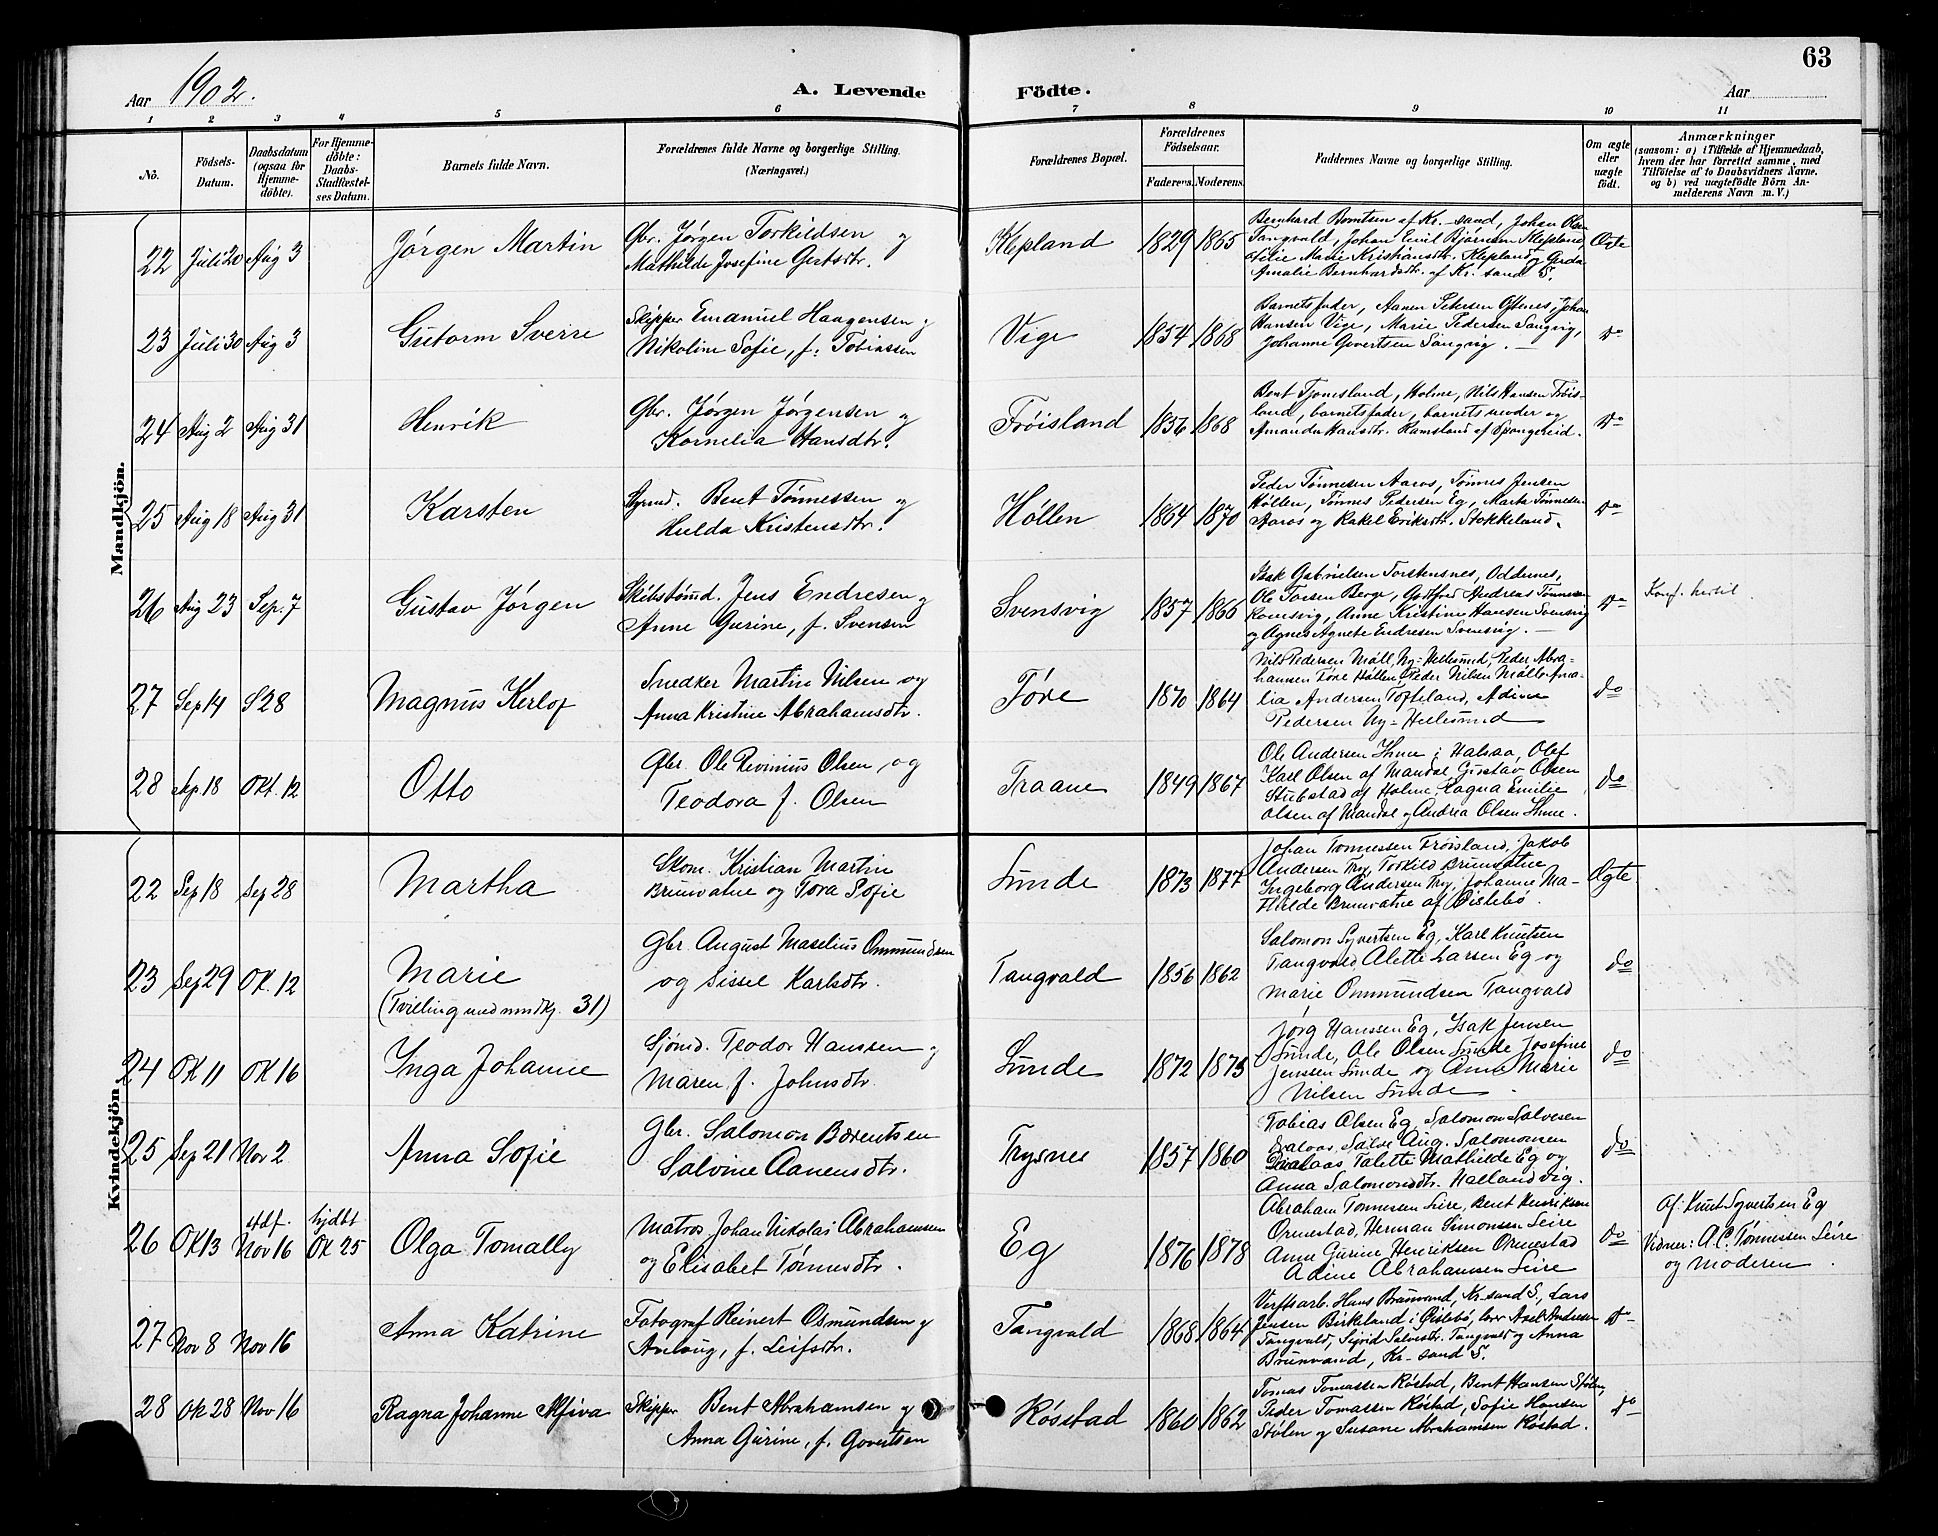 63
Aar 1902.
A. Levende
Födte.
Aar
1 2 3 4 5 6 7 8 9 10 11
No.
Födsels-
Datum.
Daabsdatum
(ogsaa for
Hjemme-
döbte).
For Hjemme-
döbte:
Daabs-
Stadfæstel-
ses Datum.
Barnets fulde Navn.
Forældrenes fulde Navne og borgerlige Stilling.
(Næringsvei.)
Forældrenes Bopæl.
Forældrenes
Födselsaar.
Faderens.
Moderens.
Faddernes Navne og borgerlige Stilling.
Om ægte
eller
uægte
födt.
Anmærkninger
(saasom: a) i Tilfælde af Hjemmedaab,
hvem der har forrettet samme, med
Tilföielse af to Daabsvidners Navne,
og b) ved uægtefödte Börn An-
melderens Navn m. V.)
Mandkjön.
22 Juli 20 Aug 3
Jørgen Martin
Gbr. Jørgen Torkildsen og
Mathilde Josefine Gertsdtr.
Klepland
1829 1865
Bernhard Bomtsen af Kr.-sand, Johan Olsen
Tangvald, Johan Emil Bjørnsen Klepland
Marie Kristiansdtr. Klepland og Gerda
Amalie Bernhardsdtr. af Kr. sand S.
Ægte
23 Juli 30 Aug 3
Gutorm Sverre
Skipper Emanuel Haagensen og
Nikoline Sofie, f. Tobiassen
Vige
1854 1868
Barnets fader, Aanen Petersen Oftenes, Johan
Hansen Vige, Marie Pedersen Sangvig,
Johanne Govertsen Sangvig.
do
24 Aug 2 Aug 31
Henrik
Gbr. Jørgen Jørgensen og
Kornelia Hansdtr.
Frøisland
1836 1868
Bent Tjomsland, Holme, Nils Hansen Frøis-
land, barnets fader, barnets moder og
Amanda Hansdtr. Ramsland af Spangereid.
do
25 Aug 18 Aug 31
Karsten
Bent Tønnessen og
Hulda Kristensdtr.
Høllen
1864 1870
Peder Tønnesen Aaros, Tønnes Jensen
Høllen, Tønnes Pedersen Eg, Marta Tønnesen
Aaros og Rakel Eriksdtr. Stokkeland.
do
26 Aug 23 Sep. 7
Gustav Jørgen
Skibstømd. Jens Endresen og
Anne Gurine, f. Svensen
Svensvig
1857 1866
Isak Gabrielsen Torstensnes, Oddernes,
Ole Tarsen Berge, Godtfred Andreas Tønnesen
Romsvig, Anne Kristine Hansen Svensvig
og Agnes Agnete Endresen Svensvig.
do
Konf. hertil
27 Sep 14 S 28
Magnus Kerlof
Snedker Martin Nilsen og
Anna Kristine Abrahamsdtr.
Føre
1870 1864
Nils Pedersen Møll, Ny-Hellesund, Peder Abra-
hamsen Føre Høllen, Peder Nilsen Møll, Ama-
lia Andersen Tofteland, Adine
Pedersen Ny-Hellesund
do
28 Sep. 18 Okt. 12
Otto
Gbr. Ole Revinius Olsen og
Teodora f. Olsen
Traane
1849 1867
Ole Andersen Ihme i Halsaa, Olef
Karl Olsen af Mandal, Gustav Olsen
Stubstad af Holme, Ragna Emilie
Olsen af Mandal og Andrea Olsen Ihme.
do
Kvindekjön.
22 Sep 18 Sep 28
Martha
Skom. Kristian Martin
Brunvatne og Tora Sofie
Sunde
1873 1877
Johan Tønnessen Frøisland, Jakob
Andersen Try, Torkild Brunvatne
Ingeborg Andersen Try, Johanne Ma-
thilde Brunvatne af Øislebø.
Ægte
23 Sep 29 Ok. 12
Marie
(Tvilling med mndkj. 31)
Gbr. August Maselius Ommundsen
og Sissel Karlsdtr.
Tangvald
1856 1862
Salomon Syvertsen Eg, Karl Knutsen
Tangvald, Alette Larsen Eg og
Marie Ommundsen Tangvald
do
24 Ok 11 Ok 16
Inga Johanne
Sjømd. Teodor Hanssen og
Maren f. Johnsdtr.
Sunde
1872 1873
Jørg Hanssen Eg, Isak Jensen
Sunde, Ole Olsen Sunde, Josefine
Jenssen Sunde og Anne Marie
Nilsen Sunde
do
25 Sep 21 Nov 2
Anna Sofie
Gbr. Salomon Bærentsen
Salvine Aanensdtr.
Trysnes
1857 1860
Tobias Olsen Eg, Salomon Salvesen
Aug. Salomonsen
Talette Mathilde Eg og
Anna Salomonsdtr. Hallandvig.
do
26 Ok 13 Nov 16
hjdbt
Ok 25
Olga Tomally
Matros Johan Nikolai Abrahamsen
og Elisabet Tønnesdtr.
Eg
1876 1878
Abraham Tønnesen Leire, Bent Henriksen
Ormestad, Herman Simonsen Leire
Anne Gurine Henriksen Ormestad
Adine Abrahamsen Leire
do
Af Knut Syvertsen Eg
Vidner: A. C. Tønnessen Leire
og Moderen.
27 Nov 8 Nov 16
Anna Katrine
Fotograf Reinert Osmundsen og
f. Leifsdtr.
Tangvald
1868 1864
Verftsarb. Hans Brunvand, Kr. sand S., Lars
Jensen Birkeland i Øislebø, Axel Andersen
Tangvald, Sigrid Salvesdtr. Tangvald og Anna
Brunvand, Kr-sand S.
do
28 Ok 28 Nov 16
Ragna Johanne Alfiva
Skipper Bent Abrahamsen og
Anna Gurine, f. Govertsen
Røsstad
1860 1862
Tomas Tomassen Røstad, Bent Hansen Stølen,
Peder Tomassen Røstad, Sofie Hansen
Stølen og Susane Abrahamsen Røstad.
do